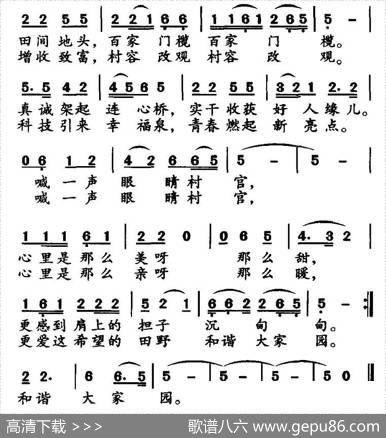 2 2 5 5 | 2 2 1 6 | 1 6 1 2 6 5 | 5 - |
田间地头，百家 门槛 百家 门 槛。
增收致富，村容 改观 村容 改 观。
5. 5 4 2 | 4 5 6 5 | 2 2 5 5 | 3 2 1 2. 2 |
真诚架起 连 心桥，实干收获 好 人 缘儿。
科技引来 幸 福泉，青春燃起 新 亮点。
0 6 1 2 | 4 2 6 6 5 | 5 - | 5 - |
喊 一 声 眼 睛 村 官，
喊 一 声 眼 睛 村 官，
1 1 1 6 1 | 2 2 0 | 0 6 5 | 4. 3 2 |
心里是那么 美呀 那么 甜，
心里是那么 亲呀 那么 暖，
1 6 1 2 2 2 1 | 5 2 1 | 6 6 2 2 6 5 | 5 - :‖
更感到肩上的 担子 沉 甸 甸。
更爱这希望的 田野 和谐 大家 园。
2 2. | 6 6. 5 | 5 - | 5 - | 5 - | 5 0 ‖
和谐 大 家 园。
高清下载 >>> 歌谱八六 www.gepu86.com